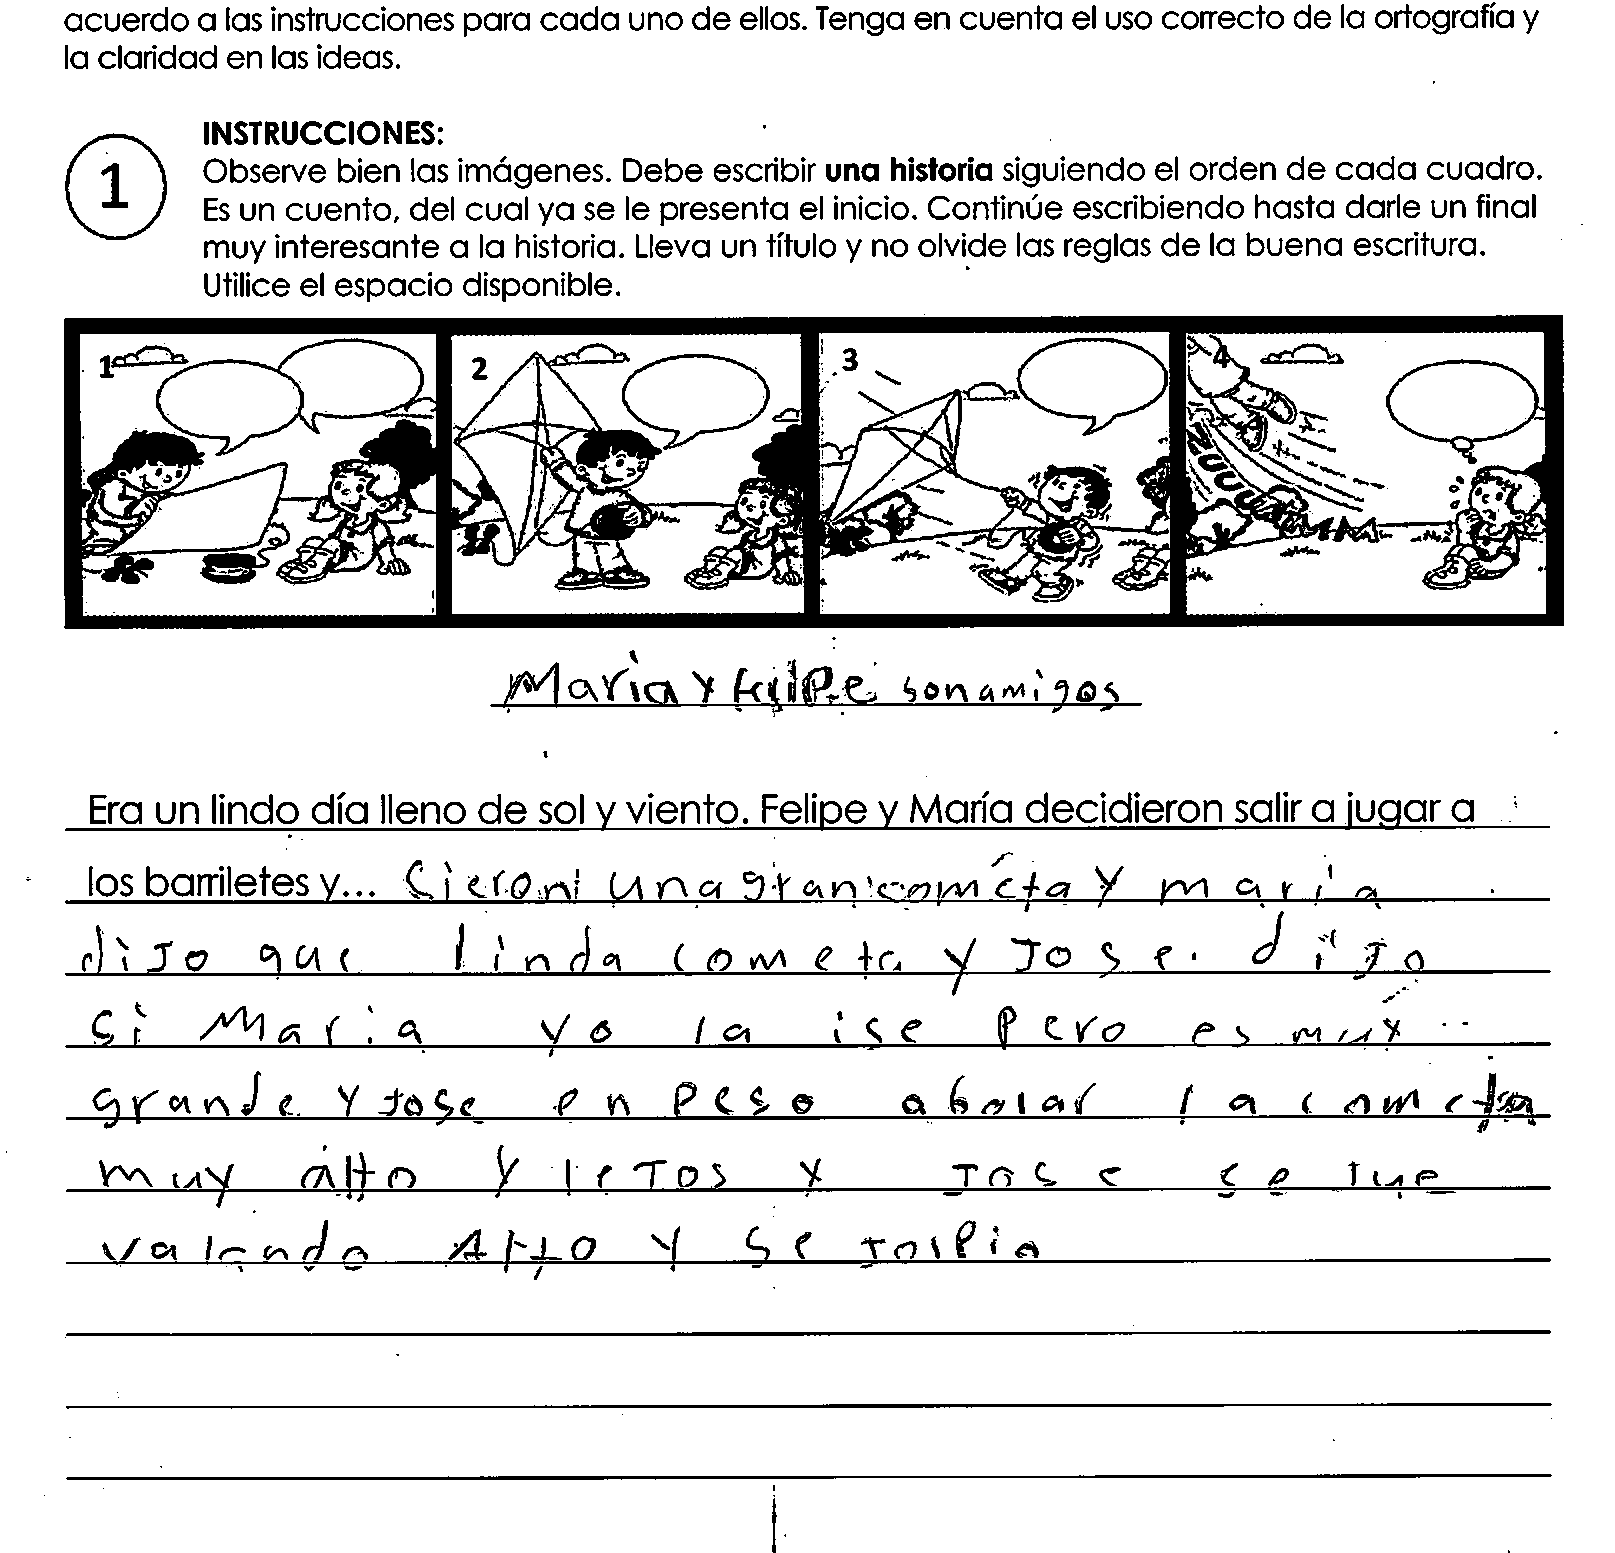 acuerdo a las instrucciones para cada uno de ellos. Tenga en cuenta el uso correcto de la ortografía y
la claridad en las ideas.
1
INSTRUCCIONES:
Observe bien las imágenes. Debe escribir una historia siguiendo el orden de cada cuadro.
Es un cuento, del cual ya se le presenta el inicio. Continúe escribiendo hasta darle un final
muy interesante a la historia. Lleva un título y no olvide las reglas de la buena escritura.
Utilice el espacio disponible.
1 2 3 4
ZUUUU
Maria y son amigos
Era un lindo día lleno de sol y viento. Felipe y María decidieron salir a jugar a
los barriletes y... cieron una gran cometa y maria
dijo que linda cometa y Jose. dijo
si Maria yo la ise pero es muy
grande y Jose en peso abolar la cometa
muy alto y leJos y Jose se fue
valando Alto y se